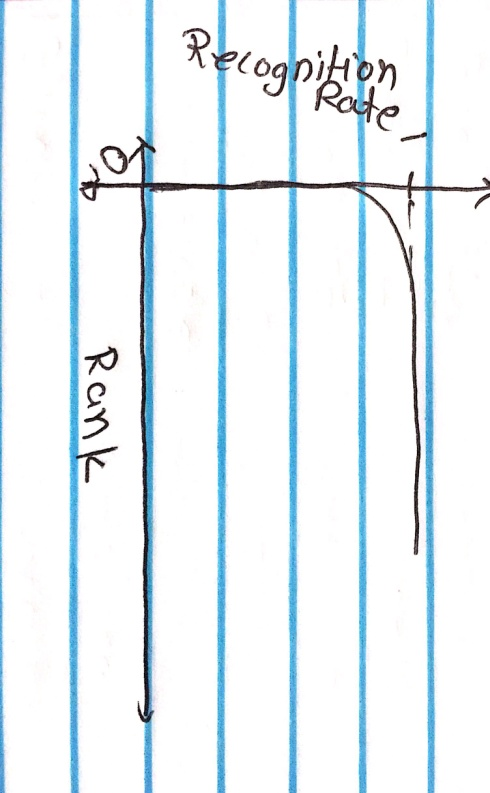 Recognition
Rate
1
0
Rank